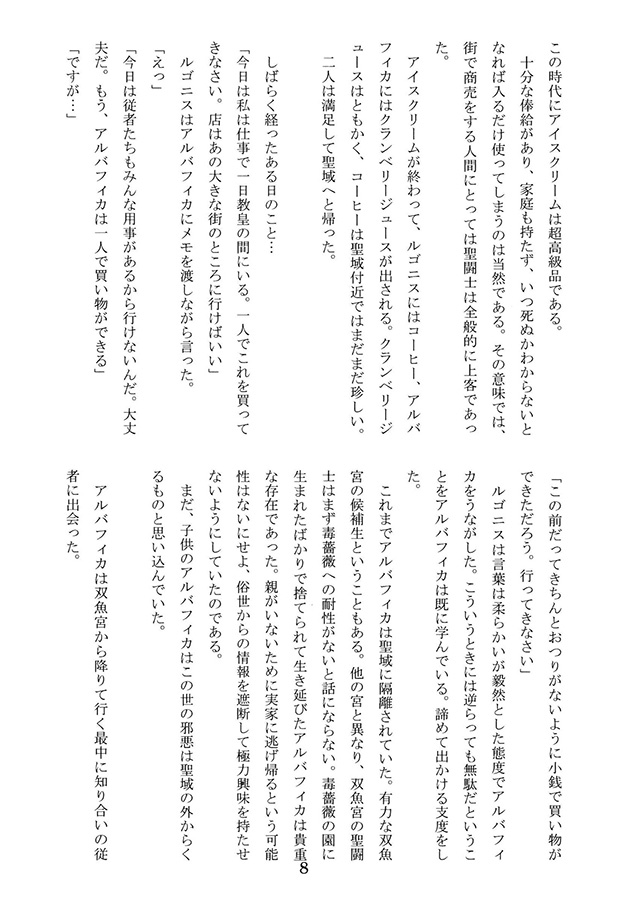 この時代にアイスクリームは超高級品である。
　十分な俸給があり、家庭も持たず、いつ死ぬかわからないと
なれば入るだけ使ってしまうのは当然である。その意味では、
街で商売をする人間にとっては聖闘士は全般的に上客であっ
た。
　アイスクリームが終わって、ルゴニスにはコーヒー、アルバ
フィカにはクランベリージュースが出される。クランベリージ
ュースはともかく、コーヒーは聖域付近ではまだまだ珍しい。
　二人は満足して聖域へと帰った。
　しばらく経ったある日のこと…
「今日は私は仕事で一日教皇の間にいる。一人でこれを買って
きなさい。店はあの大きな街のところに行けばいい」
　ルゴニスはアルバフィカにメモを渡しながら言った。
「えっ」
「今日は従者たちもみんな用事があるから行けないんだ。大丈
夫だ。もう、アルバフィカは一人で買い物ができる」
「ですが…」
「この前だってきちんとおつりがないように小銭で買い物が
できただろう。行ってきなさい」
　ルゴニスは言葉は柔らかいが毅然とした態度でアルバフィ
カをうながした。こういうときには逆らっても無駄だというこ
とをアルバフィカは既に学んでいる。諦めて出かける支度をし
た。
　これまでアルバフィカは聖域に隔離されていた。有力な双魚
宮の候補生ということもある。他の宮と異なり、双魚宮の聖闘
士はまず毒薔薇への耐性がないと話にならない。毒薔薇の園に
生まれたばかりで捨てられて生き延びたアルバフィカは貴重
な存在であった。親がいないために実家に逃げ帰るという可能
性はないにせよ、俗世からの情報を遮断して極力興味を持たせ
ないようにしていたのである。
　まだ、子供のアルバフィカはこの世の邪悪は聖域の外からく
るものと思い込んでいた。
　アルバフィカは双魚宮から降りて行く最中に知り合いの従
者に出会った。
8